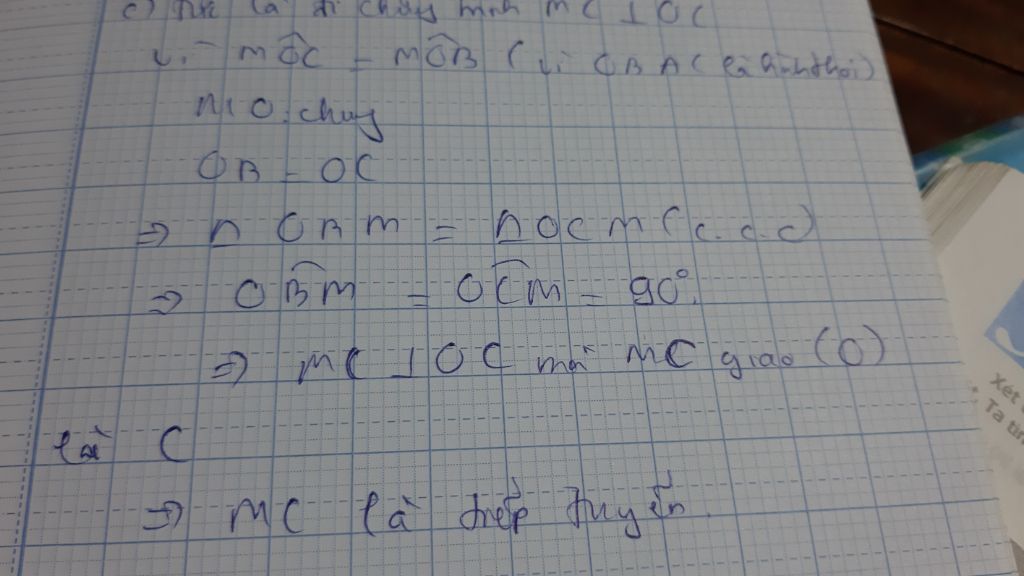 c) tức là đi chứng minh MC ⊥ OC
Vì MÔC = MÔB (vì OBAC là hình thoi)
MO: chung
OB = OC
=> Δ OBM = ΔOCM (c.c.c)
=> OB̂M = OĈM = 90°.
=> MC ⊥ OC mà MC giao (O)
là C
=> MC là tiếp tuyến.
Xét
Ta tìm